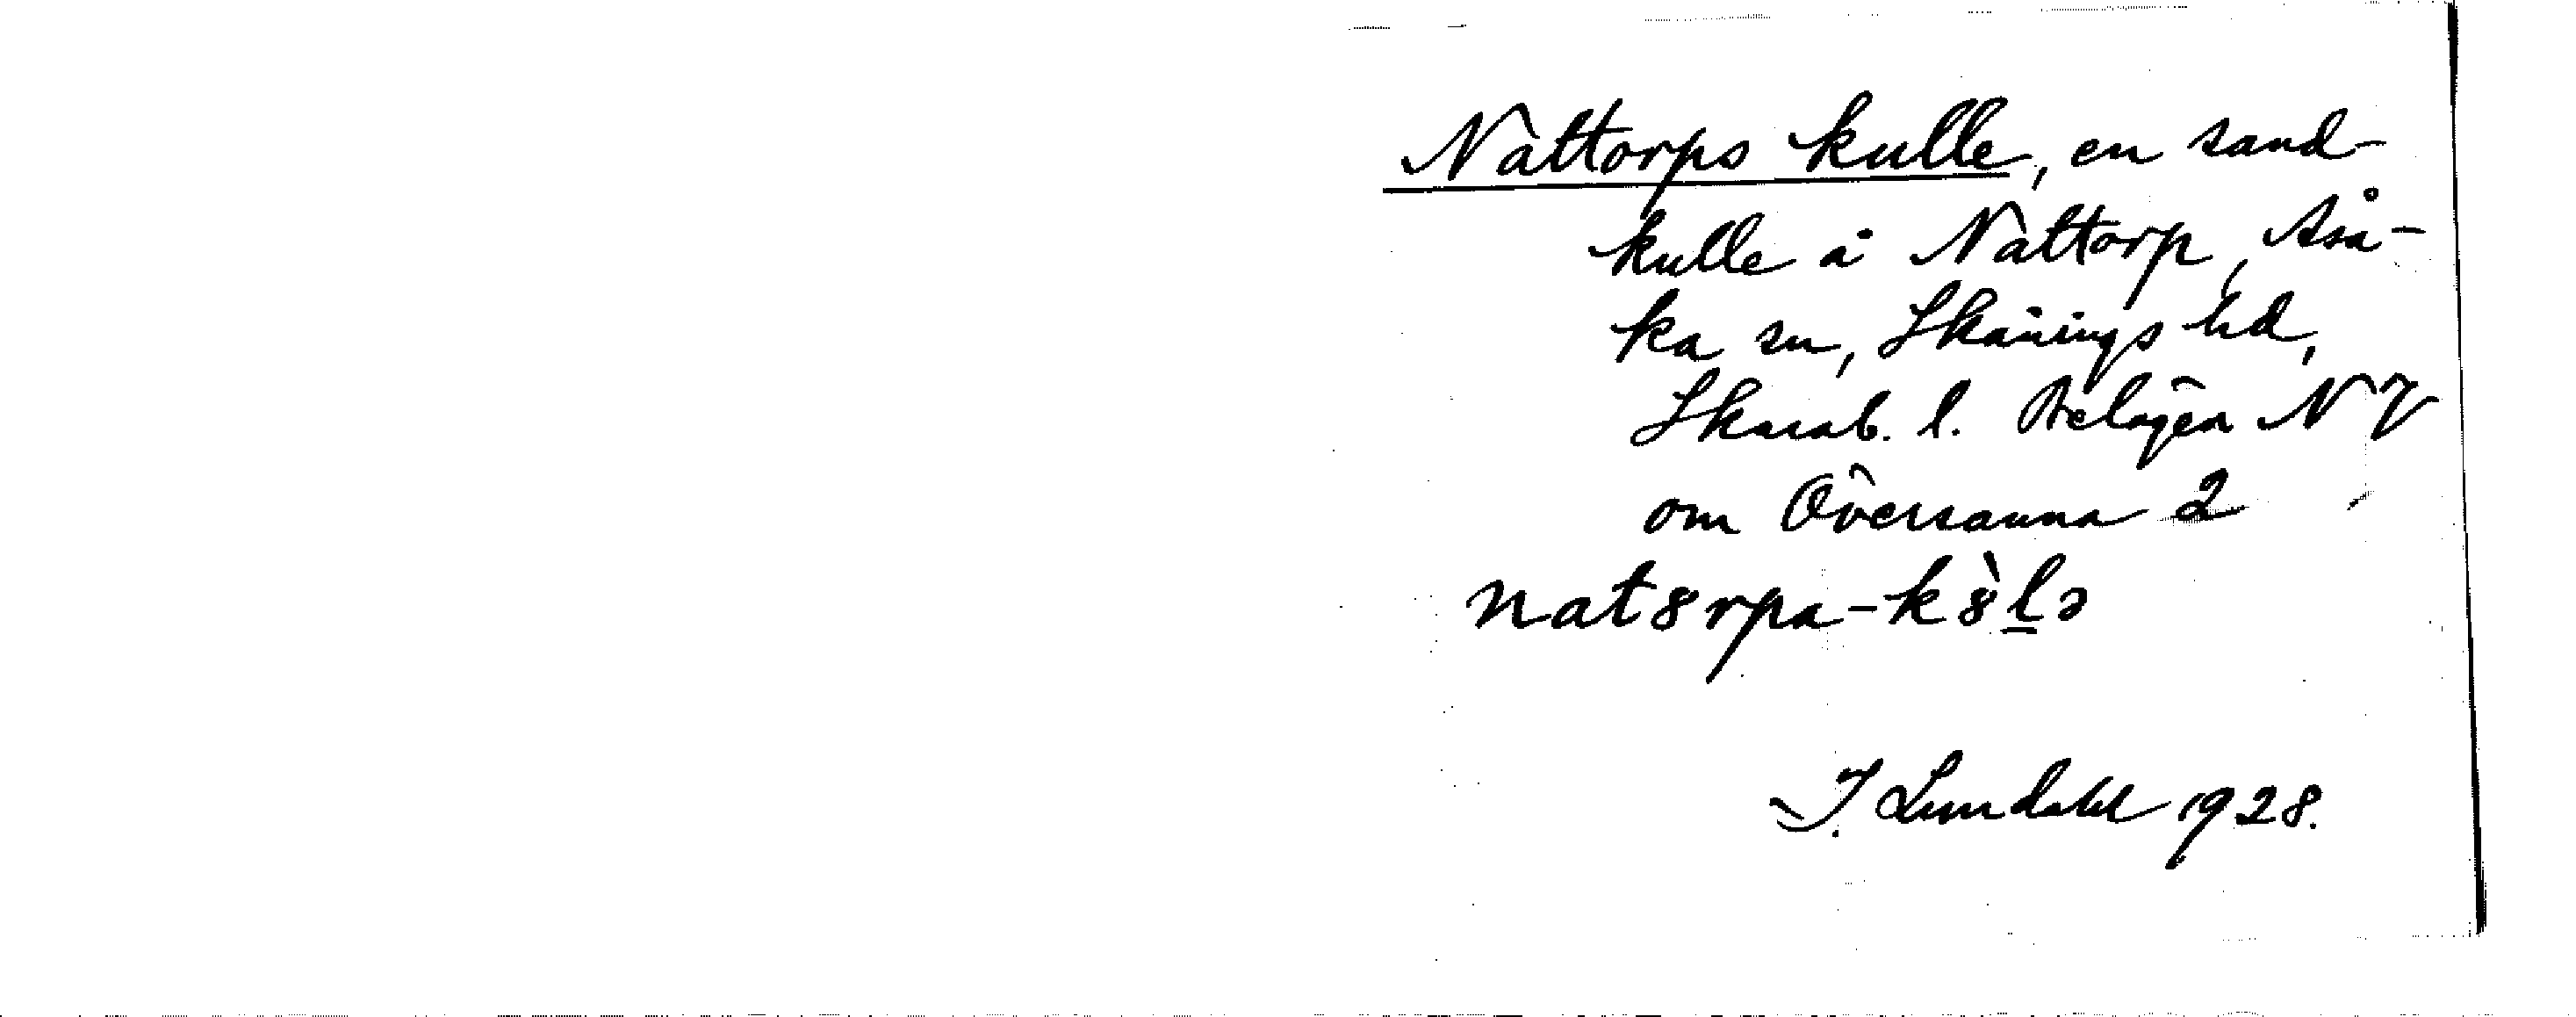 Nattorps kulle, en sand-
kulle å Nattorp, Aså-
ka sn, Skånings hd,
Skarab. l. Belägen NV
om Översanna 2
nat8rpa-k8̀l̲ə
I. Lundahl 1928.